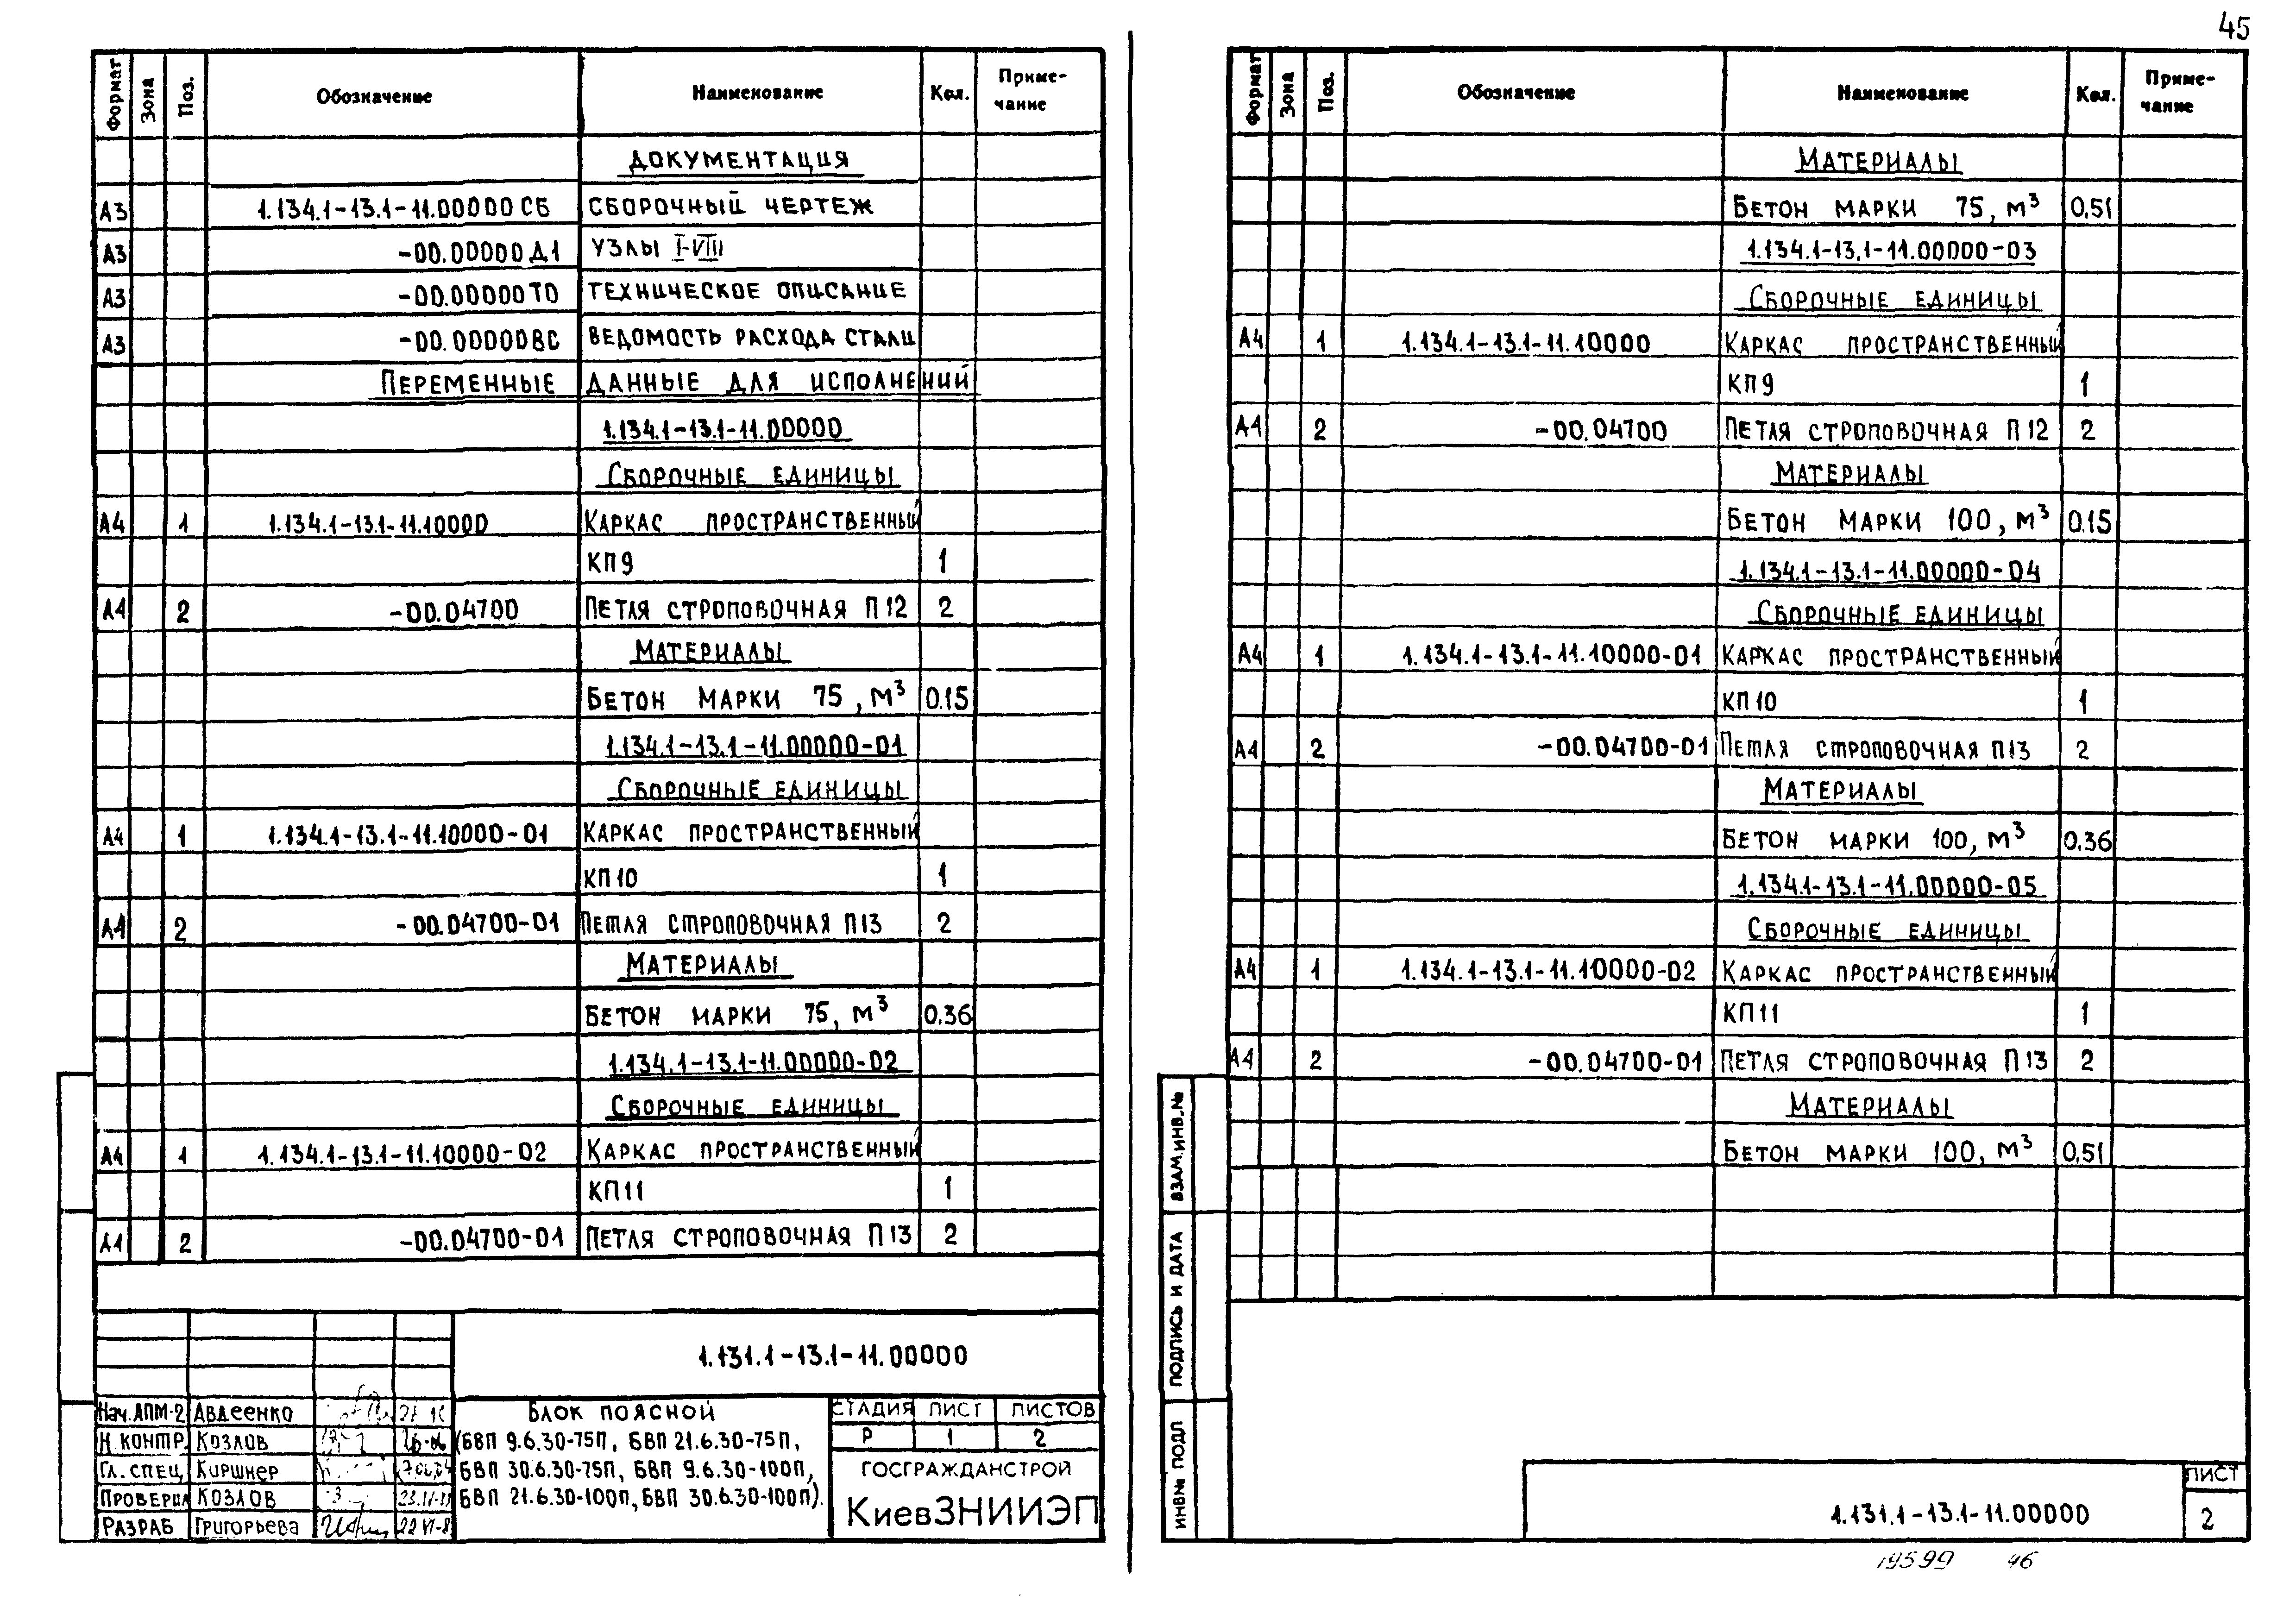 45
Формат Зона Поз. Обозначение Наименование Кол. Приме-
чание
ДОКУМЕНТАЦИЯ
А3 1.134.1-13.1-11.00000 СБ СБОРОЧНЫЙ ЧЕРТЕЖ
А3 -00.00000 Д1 УЗЛЫ I-VIII
А3 -00.00000 ТО ТЕХНИЧЕСКОЕ ОПИСАНИЕ
А3 -00.00000 ВС ВЕДОМОСТЬ РАСХОДА СТАЛИ
ПЕРЕМЕННЫЕ ДАННЫЕ ДЛЯ ИСПОЛНЕНИЙ
1.134.1-13.1-11.00000
СБОРОЧНЫЕ ЕДИНИЦЫ
А4 1 1.134.1-13.1-11.10000 КАРКАС ПРОСТРАНСТВЕННЫЙ
КП9 1
А4 2 -00.04700 ПЕТЛЯ СТРОПОВОЧНАЯ П12 2
МАТЕРИАЛЫ
БЕТОН МАРКИ 75, М³ 0.15
1.134.1-13.1-11.00000-01
СБОРОЧНЫЕ ЕДИНИЦЫ
А4 1 1.134.1-13.1-11.10000-01 КАРКАС ПРОСТРАНСТВЕННЫЙ
КП10 1
А4 2 -00.04700-01 ПЕТЛЯ СТРОПОВОЧНАЯ П13 2
МАТЕРИАЛЫ
БЕТОН МАРКИ 75, М³ 0.36
1.134.1-13.1-11.00000-02
СБОРОЧНЫЕ ЕДИНИЦЫ
А4 1 1.134.1-13.1-11.10000-02 КАРКАС ПРОСТРАНСТВЕННЫЙ
КП11 1
А4 2 -00.04700-01 ПЕТЛЯ СТРОПОВОЧНАЯ П13 2
1.131.1-13.1-11.00000
Нач.АПМ-2 АВДЕЕНКО
Н.КОНТР. КОЗЛОВ
ГЛ.СПЕЦ КИРШНЕР
ПРОВЕРИЛ КОЗЛОВ
РАЗРАБ ГРИГОРЬЕВА
БЛОК ПОЯСНОЙ
(БВП 9.6.30-75П, БВП 21.6.30-75П,
БВП 30.6.30-75П, БВП 9.6.30-100П,
БВП 21.6.30-100П, БВП 30.6.30-100П).
СТАДИЯ ЛИСТ ЛИСТОВ
Р 1 2
ГОСГРАЖДАНСТРОЙ
КиевЗНИИЭП
Формат Зона Поз. Обозначение Наименование Кол. Приме-
чание
МАТЕРИАЛЫ
БЕТОН МАРКИ 75, М³ 0,51
1.134.1-13.1-11.00000-03
СБОРОЧНЫЕ ЕДИНИЦЫ
А4 1 1.134.1-13.1-11.10000 КАРКАС ПРОСТРАНСТВЕННЫЙ
КП9 1
А4 2 -00.04700 ПЕТЛЯ СТРОПОВОЧНАЯ П12 2
МАТЕРИАЛЫ
БЕТОН МАРКИ 100, М³ 0.15
1.134.1-13.1-11.00000-04
СБОРОЧНЫЕ ЕДИНИЦЫ
А4 1 1.134.1-13.1-11.10000-01 КАРКАС ПРОСТРАНСТВЕННЫЙ
КП10 1
А4 2 -00.04700-01 ПЕТЛЯ СТРОПОВОЧНАЯ П13 2
МАТЕРИАЛЫ
БЕТОН МАРКИ 100, М³ 0.36
1.134.1-13.1-11.00000-05
СБОРОЧНЫЕ ЕДИНИЦЫ
А4 1 1.134.1-13.1-11.10000-02 КАРКАС ПРОСТРАНСТВЕННЫЙ
КП11 1
А4 2 -00.04700-01 ПЕТЛЯ СТРОПОВОЧНАЯ П13 2
МАТЕРИАЛЫ
БЕТОН МАРКИ 100, М³ 0,51
ВЗАМ.ИНВ.№
ПОДПИСЬ И ДАТА
ИНВ№ ПОДЛ
1.131.1-13.1-11.00000
ЛИСТ
2
19599 46